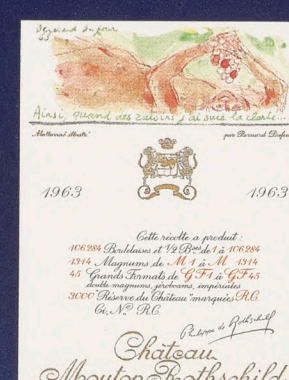 Bernard Dufour
63
Ainsi, quand des raisins j'ai sucé la clarté...
Mallarmé illustré par Bernard Dufour
1963 1963
Cette récolte a produit :
106.284 Bordelaises et 1/2 Bses de 1 à 106284
1314 Magnums de M 1 à M 1314
45 Grands Formats de G F 1 à G F 45
double magnums, jéroboams, impériales
3000 "Réserve du Château" marquées R.C.
Ci, N° R.C.
Philippe de Rothschild
Château
Mouton Rothschild